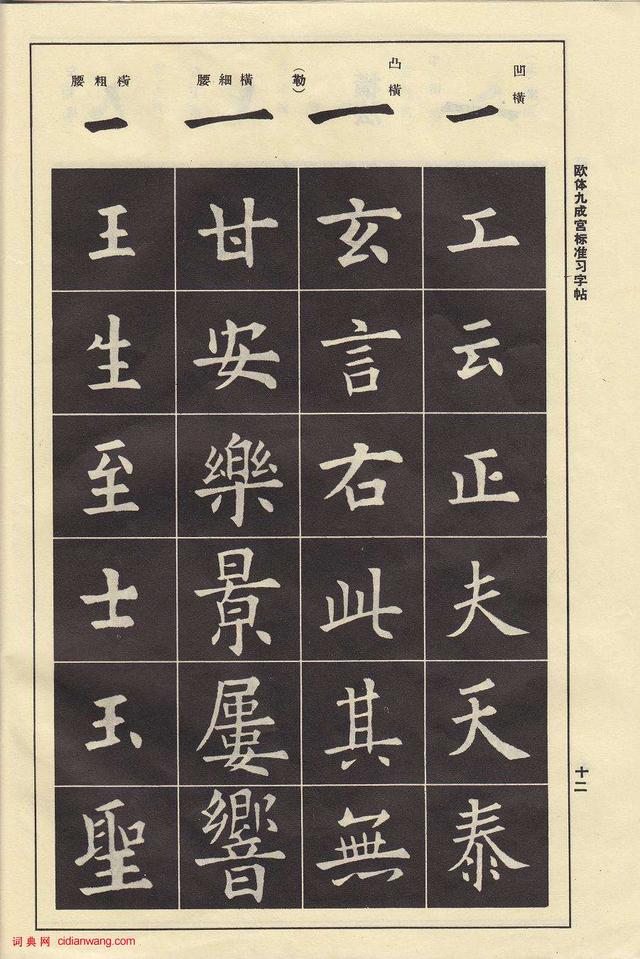 欧体九成宫标准习字帖
十二
凹橫
工云正夫天泰
凸橫
(勒)
玄言右此其無
橫細腰
甘安樂景屢響
橫粗腰
王生至士玉聖
词典网 cidianwang.com